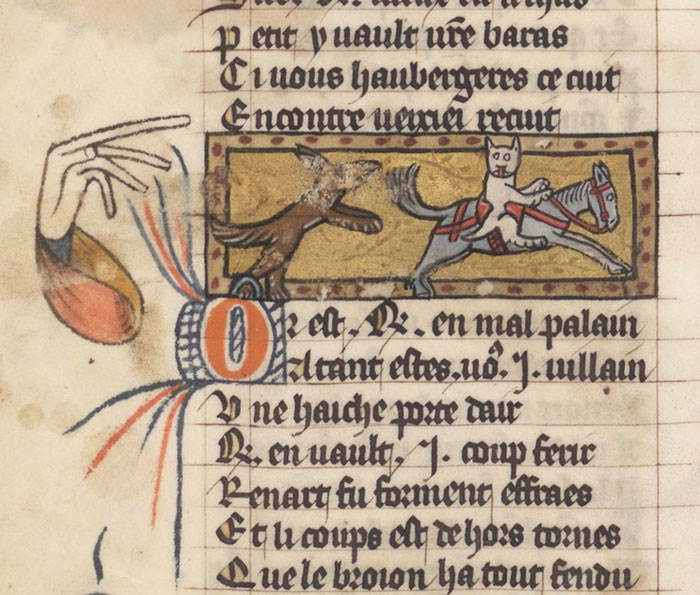 P etit y uault ur̃e baras
C i uous haubergeres ce cuit
E ncontre uenie recuit
O r est . R . en mal palain
A ltant estes . uo9 . J . uillain
V ne haiche porte dair
R . en uault . J . coup ferir
R enart fu forment effraes
E t li coups est dehors tornes
Q ue le broion ha tout fendu